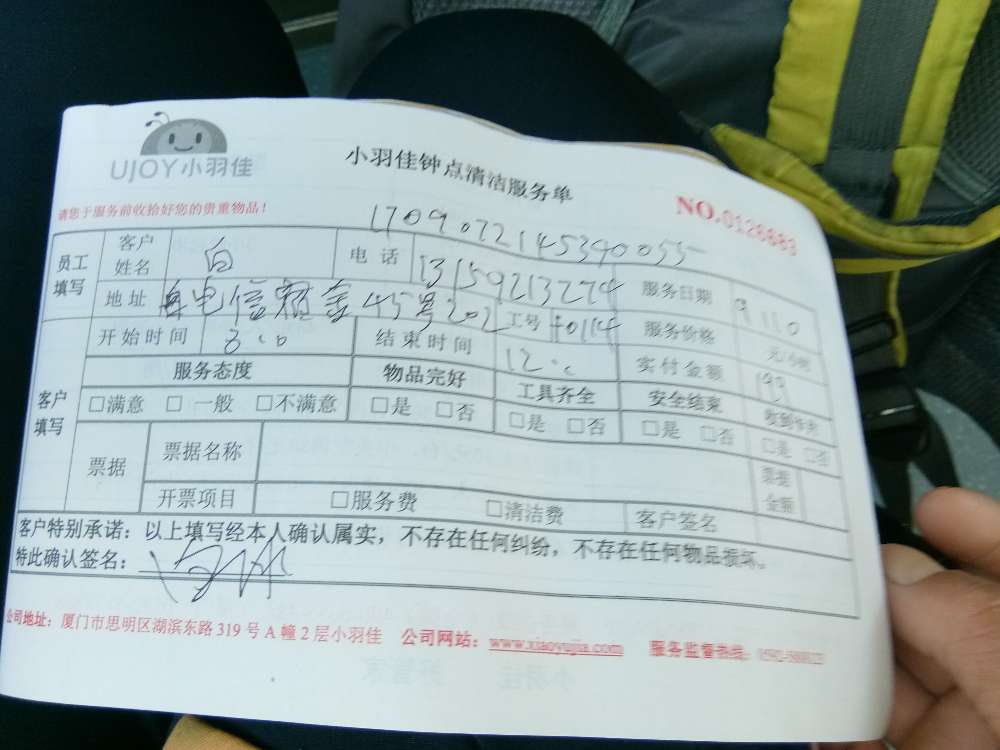 UJOY小羽佳
小羽佳钟点清洁服务单
NO.0128883
请您于服务前收拾好您的贵重物品！
170907214539005
员工填写 客户姓名 白 电话 13159213274 服务日期 9.10
地址 电信 45号202 工号 40114 服务价格 元/小时
开始时间 结束时间 12.0 实付金额 199
客户填写 服务态度 物品完好 工具齐全 安全结束 收到
□满意 □一般 □不满意 □是 □否 □是 □否 □是 □否 □是 □否
票据 票据名称 票据金额
开票项目 □服务费 □清洁费 客户签名
客户特别承诺：以上填写经本人确认属实，不存在任何纠纷，不存在任何物品损坏。
特此确认签名：
公司地址：厦门市思明区湖滨东路 319 号 A 幢 2 层小羽佳 公司网站：www.xiaoyujia.com 服务监督热线：